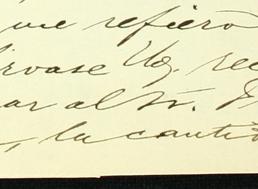 me refiero
sirvase Ud. rec
ar al Sr. 
, la canti